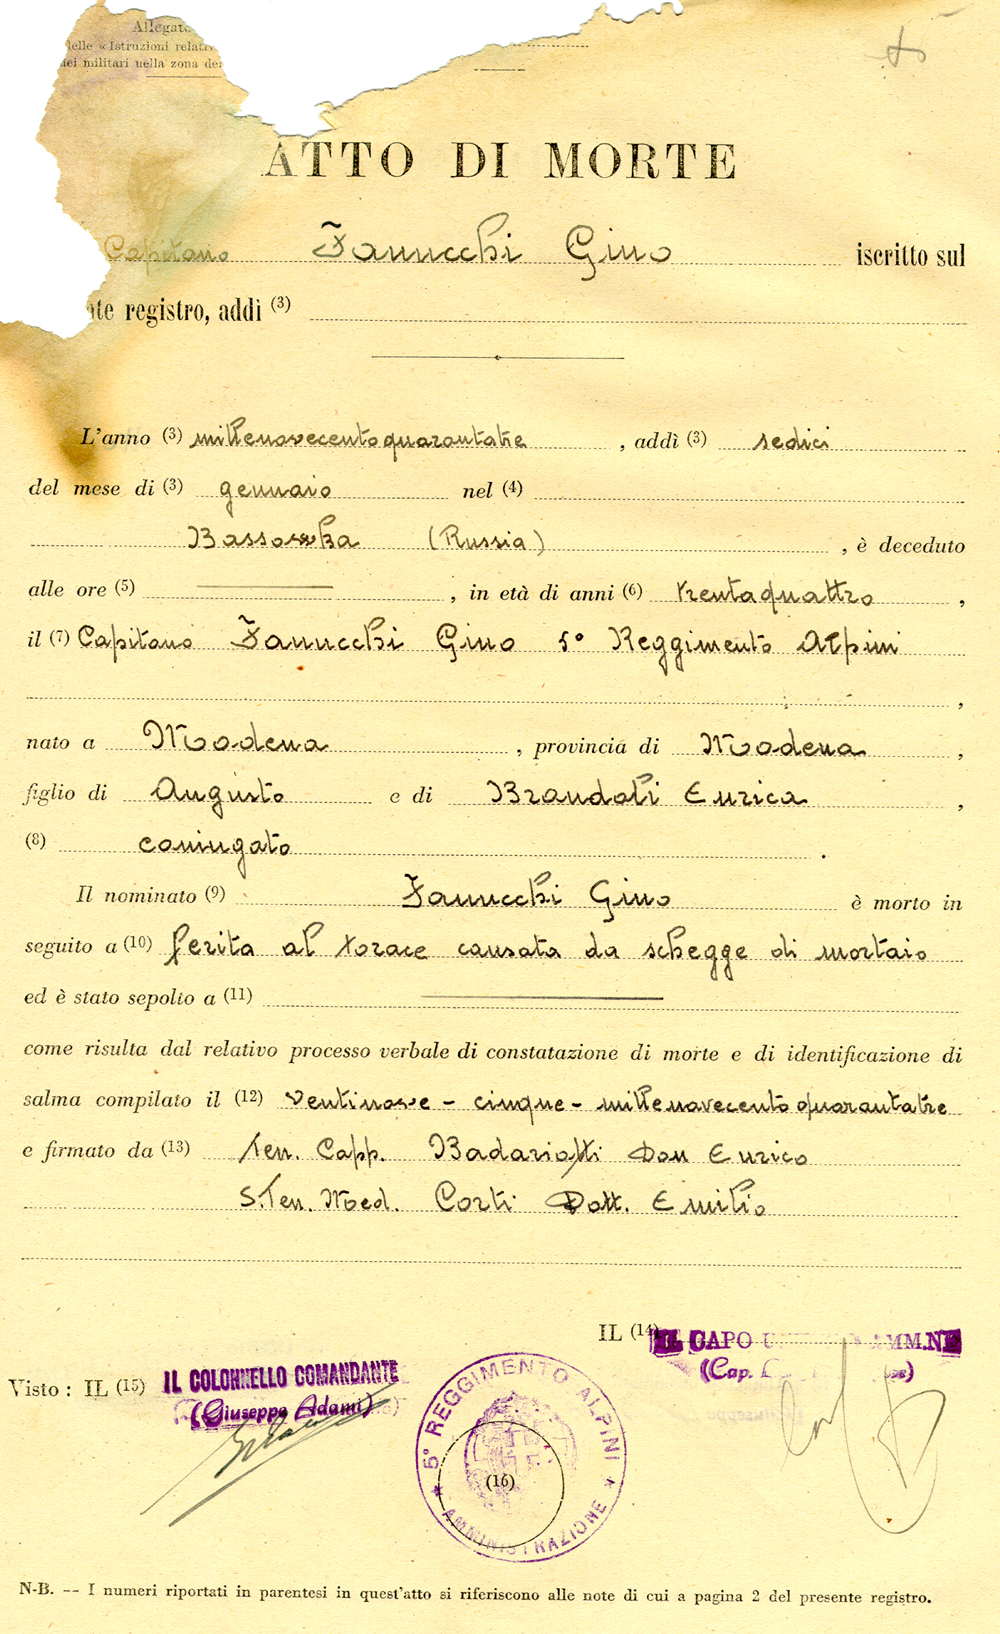 Allegato
delle « Istruzioni relat
dei militari nella zona de
ATTO DI MORTE
Capitano Fanucchi Gino iscritto sul
te registro, addì (3)
L'anno (3) millenovecentoquarantatre , addì (3) sedici
del mese di (3) gennaio nel (4)
(Russia) , è deceduto
alle ore (5) , in età di anni (6) trentaquattro ,
il (7) Capitano Fanucchi Gino 5° Reggimento Alpini
,
nato a Modena , provincia di Modena ,
figlio di Augusto e di Brandoli Enrica ,
(8) coniugato .
Il nominato (9) Fanucchi Gino è morto in
seguito a (10) ferita al torace causata da schegge di mortaio
ed è stato sepolto a (11)
come risulta dal relativo processo verbale di constatazione di morte e di identificazione di
salma compilato il (12) ventinove - cinque - millenovecentoquarantatre
e firmato da (13) Ten. Capp. Badariotti Don Enrico
S.Ten. Med. Corti Dott. Emilio
IL (14) IL CAPO U AMM.NE
(Cap.
Visto : IL (15) IL COLONNELLO COMANDANTE
(Giuseppe Adami)
5° REGGIMENTO ALPINI
(16)
* AMMINISTRAZIONE *
N-B. -- I numeri riportati in parentesi in quest'atto si riferiscono alle note di cui a pagina 2 del presente registro.